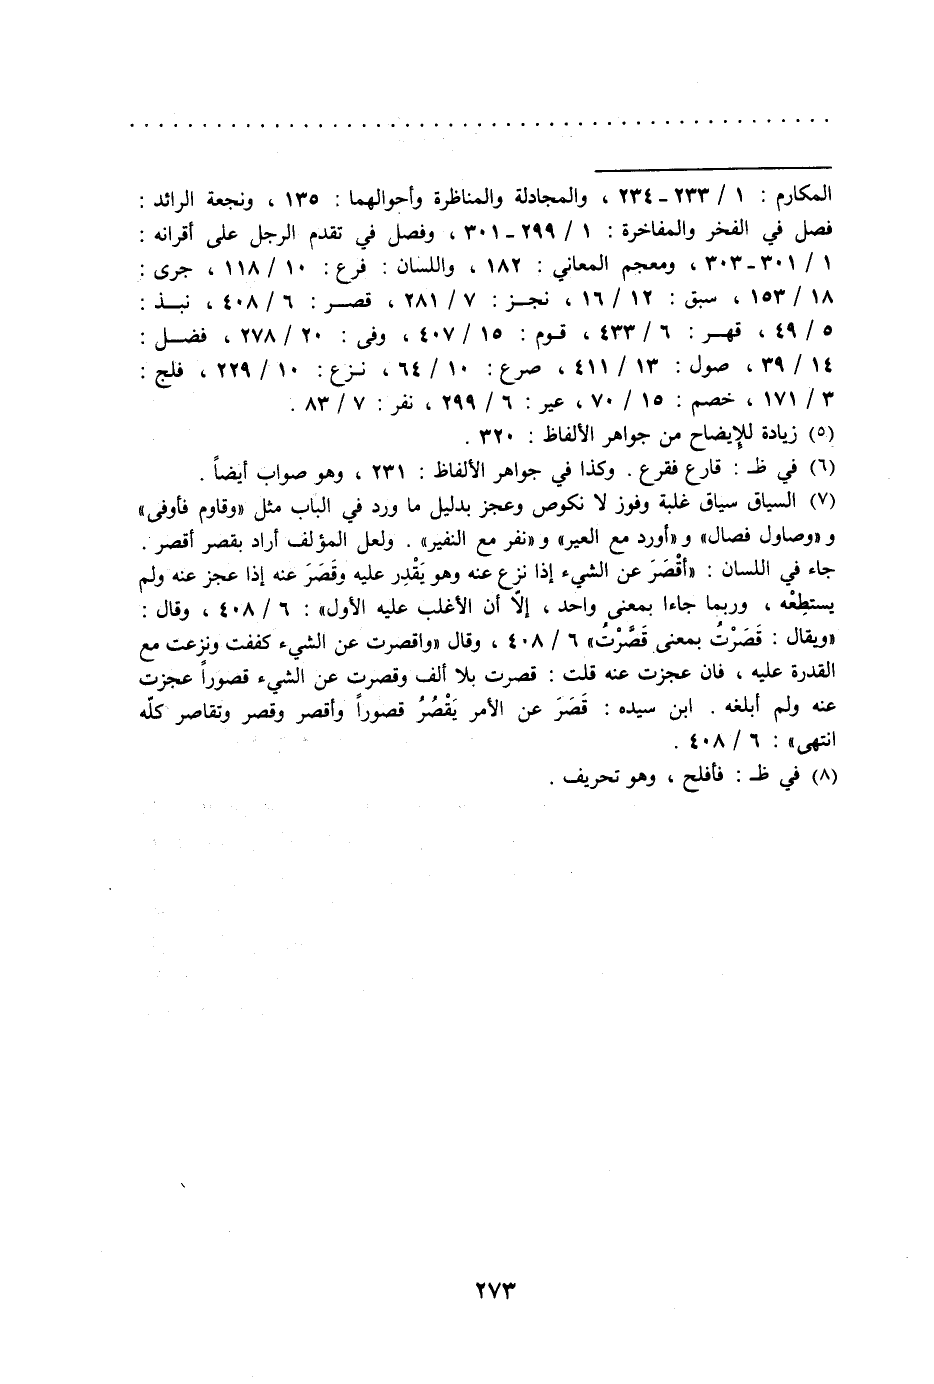 المكارم : ١ / ٢٣٣ ـ ٢٣٤ ، والمجادلة والمناظرة وأحوالهما : ١٣٥ ، ونجعة الرائد :
فصل في الفخر والمفاخرة : ١ / ٢٩٩ ـ ٣٠١ ، وفصل في تقدم الرجل على أقرانه :
١ / ٣٠١ ـ ٣٠٣ ، ومعجم المعاني : ١٨٢ ، واللسان : فرع : ١٠ / ١١٨ ، جرى :
١٨ / ١٥٣ ، سبق : ١٢ / ١٦ ، نجـز : ٧ / ٢٨١ ، قصـــر : ٦ / ٤٠٨ ، نبــذ :
٥ / ٤٩ ، قهـــر : ٦ / ٤٣٣ ، قـوم : ١٥ / ٤٠٧ ، وفى : ٢٠ / ٢٧٨ ، فضــــل :
١٤ / ٣٩ ، صول : ١٣ / ٤١١ ، صرع : ١٠ / ٦٤ ، نـزع : ١٠ / ٢٢٩ ، فلج :
٣ / ١٧١ ، خصم : ١٥ / ٧٠ ، عير : ٦ / ٢٩٩ ، نفر : ٧ / ٨٣ .
(٥) زيادة للإيضاح من جواهر الألفاظ : ٣٢٠ .
(٦) في ظـ : قارع فقرع . وكذا في جواهر الألفاظ : ٢٣١ ، وهو صواب أيضاً .
(٧) السياق سياق غلبة وفوز لا نكوص وعجز بدليل ما ورد في الباب مثل «وقاوم فأوفى»
و «وصاول فصال» و «أورد مع العير» و «نفر مع النفير» . ولعل المؤلف أراد بقصر أقصر .
جاء في اللسان : «أقْصَرَ عن الشيء إذا نزع عنه وهو يَقْدِر عليه وقَصَرَ عنه إذا عجز عنه ولم
يستطِعْه ، وربما جاءا بمعنى واحد ، إلّا أن الأغلب عليه الأول» : ٦ / ٤٠٨ ، وقال :
«ويقال : قَصَرْتُ بمعنى قَصَّرْتُ» ٦ / ٤٠٨ ، وقال «واقصرت عن الشيء كففت ونزعت مع
القدرة عليه ، فان عجزت عنه قلت : قصرت بلا ألف وقصرت عن الشيء قصوراً عجزت
عنه ولم أبلغه . ابن سيده : قَصَرَ عن الأمر يَقْصُرُ قصوراً وأقصر وقصر وتقاصر كلّه
انتهى» : ٦ / ٤٠٨ .
(٨) في ظـ : فأفلح ، وهو تحريف .
٢٧٣